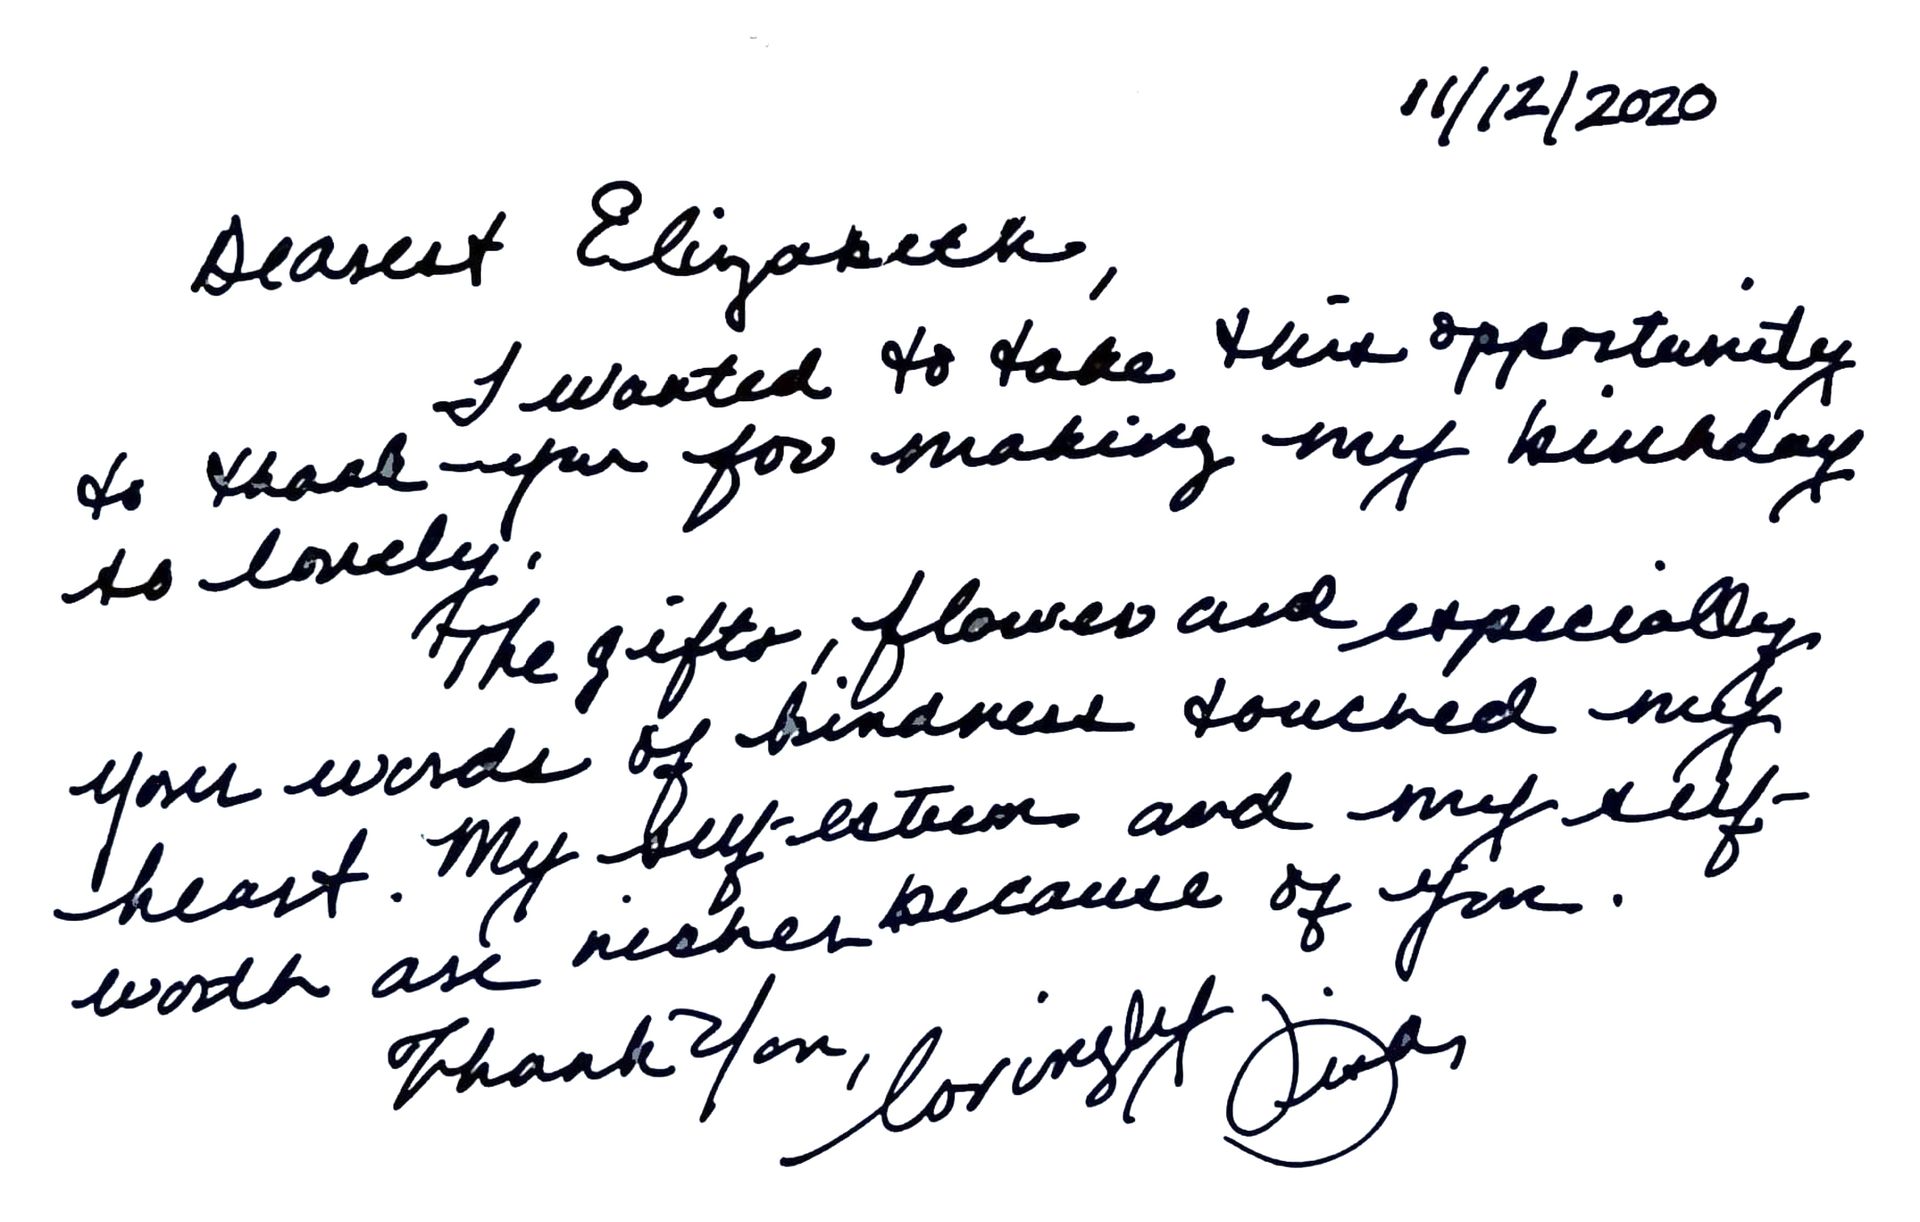 11/12/2020
Dearest Elizabeth,
I wanted to take this opportunity
to thank you for making my birthday
so lovely.
The gifts, flowers and especially
your words of kindness touched my
heart. My self-esteem and my self-
worth are richer because of you.
Thank You, lovingly